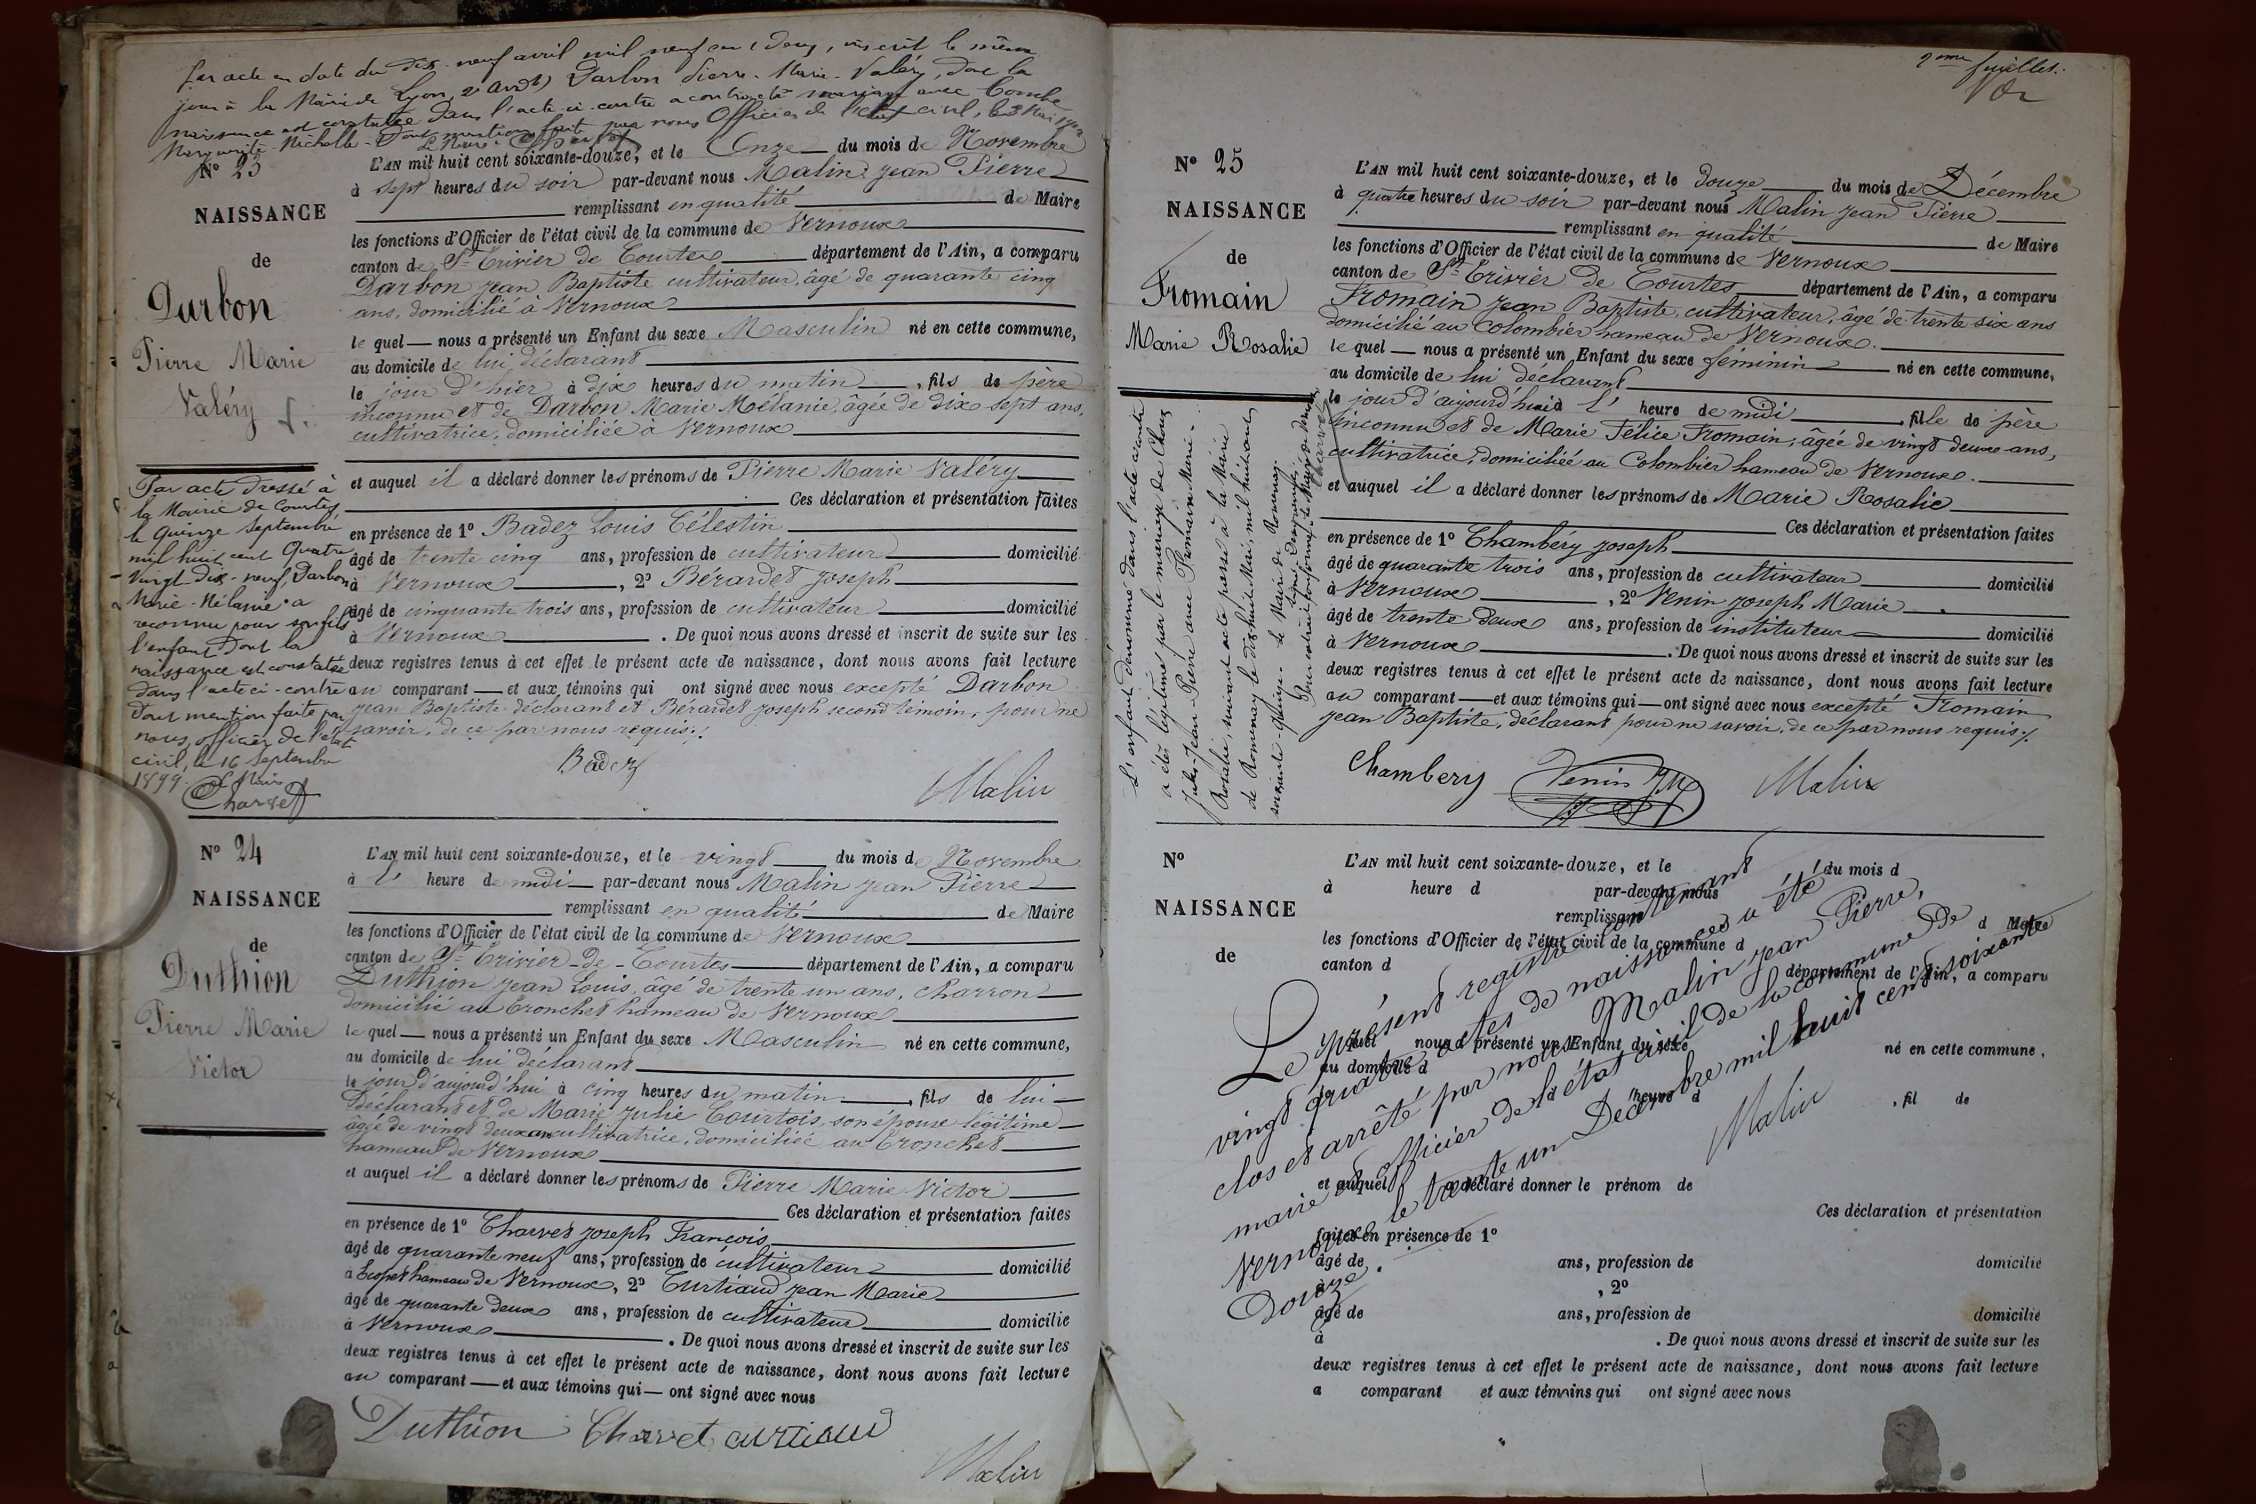 Par acte en date du dix-neuf avril mil neuf cent deux, inscrit le même
jour à la Mairie de Lyon, 2e Arrdt, Darbon Pierre-Marie-Valéry, dont la
naissance est constatée dans l'acte ci-contre a contracté mariage avec Combe
Marguerite-Michelle. Dont mention faite par nous Officier de l'état civil, le 3 Mai 1902
Le Maire
N° 23
NAISSANCE
de
Darbon
Pierre Marie
Valéry
L'AN mil huit cent soixante-douze, et le Onze du mois de Novembre
à sept heures du soir par-devant nous Malin jean Pierre
remplissant en qualité de Maire
les fonctions d'Officier de l'état civil de la commune de Vernoux
canton de St Trivier de Courtes département de l'Ain, a comparu
Darbon jean Baptiste cultivateur, âgé de quarante cinq
ans, domicilié à Vernoux
le quel nous a présenté un Enfant du sexe Masculin né en cette commune,
au domicile de lui déclarant
le jour d'hier à dix heures du matin, fils de père
inconnu et de Darbon Marie Mélanie, âgée de dix sept ans,
cultivatrice, domiciliée à Vernoux
et auquel il a déclaré donner les prénoms de Pierre Marie Valéry
Ces déclaration et présentation faites
en présence de 1° Badez Louis Célestin
âgé de trente cinq ans, profession de cultivateur domicilié
à Vernoux, 2° Bérardet joseph
âgé de cinquante trois ans, profession de cultivateur domicilié
à Vernoux. De quoi nous avons dressé et inscrit de suite sur les
deux registres tenus à cet effet le présent acte de naissance, dont nous avons fait lecture
au comparant et aux témoins qui ont signé avec nous excepté Darbon
jean Baptiste déclarant et Bérardet joseph second témoin, pour ne
savoir, de ce par nous requis./.
Badez Malin
Par acte dressé à
la Mairie de Courtes,
le Quinze Septembre
mil huit cent Quatre
Vingt Dix-neuf, Darbon
Marie-Mélanie a
reconnu pour son fils
l'enfant dont la
naissance est constatée
dans l'acte ci-contre
Dont mention faite par
nous, officier de l'état
civil, le 16 Septembre
1899. Le Maire
Charvet
N° 24
NAISSANCE
de
Duthion
Pierre Marie
Victor
L'AN mil huit cent soixante-douze, et le vingt du mois de Novembre
à l' heure de midi par-devant nous Malin jean Pierre
remplissant en qualité de Maire
les fonctions d'Officier de l'état civil de la commune de Vernoux
canton de St Trivier-de-Courtes département de l'Ain, a comparu
Duthion jean Louis, âgé de trente un ans, charron
domicilié au Tronchet hameau de Vernoux
le quel nous a présenté un Enfant du sexe Masculin né en cette commune,
au domicile de lui déclarant
le jour d'aujourd'hui à cinq heures du matin, fils de lui
déclarant et de Marie julie Courtois, son épouse légitime
âgée de vingt deux ans cultivatrice, domiciliée au Tronchet
hameau de Vernoux
et auquel il a déclaré donner les prénoms de Pierre Marie Victor
Ces déclaration et présentation faites
en présence de 1° Charvet joseph François
âgé de quarante neuf ans, profession de cultivateur domicilié
à Ecopet hameau de Vernoux, 2° Curtiaud jean Marie
âgé de quarante deux ans, profession de cultivateur domicilié
à Vernoux. De quoi nous avons dressé et inscrit de suite sur les
deux registres tenus à cet effet le présent acte de naissance, dont nous avons fait lecture
au comparant et aux témoins qui ont signé avec nous
Duthion Charvet curtiaud
Malin
9eme feuillet.
N° 25
NAISSANCE
de
Fromain
Marie Rosalie
L'AN mil huit cent soixante-douze, et le douze du mois de Décembre
à quatre heures du soir par-devant nous Malin jean Pierre
remplissant en qualité de Maire
les fonctions d'Officier de l'état civil de la commune de Vernoux
canton de St Trivier de Courtes département de l'Ain, a comparu
Fromain jean Baptiste, cultivateur, âgé de trente six ans
domicilié au Colombier hameau de Vernoux.
le quel nous a présenté un Enfant du sexe féminin né en cette commune,
au domicile de lui déclarant
le jour d'aujourd'hui à l' heure de midi, fille de père
inconnu et de Marie Félice Fromain, âgée de vingt deux ans,
cultivatrice, domiciliée au Colombier hameau de Vernoux.
et auquel il a déclaré donner les prénoms de Marie Rosalie
Ces déclaration et présentation faites
en présence de 1° Chambéry joseph
âgé de quarante trois ans, profession de cultivateur domicilié
à Vernoux, 2° Venin joseph Marie
âgé de trente deux ans, profession de instituteur domicilié
à Vernoux. De quoi nous avons dressé et inscrit de suite sur les
deux registres tenus à cet effet le présent acte de naissance, dont nous avons fait lecture
au comparant et aux témoins qui ont signé avec nous excepté Fromain
jean Baptiste, déclarant pour ne savoir, de ce par nous requis./.
Chambery Venin JM Malin
L'enfant dénommé dans l'acte ci-contre
a été légitimé par le mariage de
Jules-Jean-Pierre avec Fromain Marie-
Rosalie, suivant acte passé à la Mairie
de Romenay le dix huit Mai, mil huit cent
soixante quinze. Le Maire de Romenay.
Pour extrait conforme. Le Maire de Vernoux
N°
NAISSANCE
de
L'AN mil huit cent soixante-douze, et le du mois d
à heure d par-devant nous
remplissant d Maire
les fonctions d'Officier de l'état civil de la commune d
canton d département de l'Ain, a comparu
quel nous a présenté un Enfant du sexe né en cette commune,
au domicile d
heure d, fil de
et auquel a déclaré donner le prénom de
Ces déclaration et présentation
faites en présence de 1°
âgé de ans, profession de domicilié
à, 2°
âgé de ans, profession de domicilié
à. De quoi nous avons dressé et inscrit de suite sur les
deux registres tenus à cet effet le présent acte de naissance, dont nous avons fait lecture
a comparant et aux témoins qui ont signé avec nous
Le présent registre contenant
vingt quatre actes de naissances a été
clos et arrêté par nous Malin jean Pierre,
maire et officier de l'état civil de la commune de
Vernoux le trente un Décembre mil huit cent soixante
Douze.
Malin